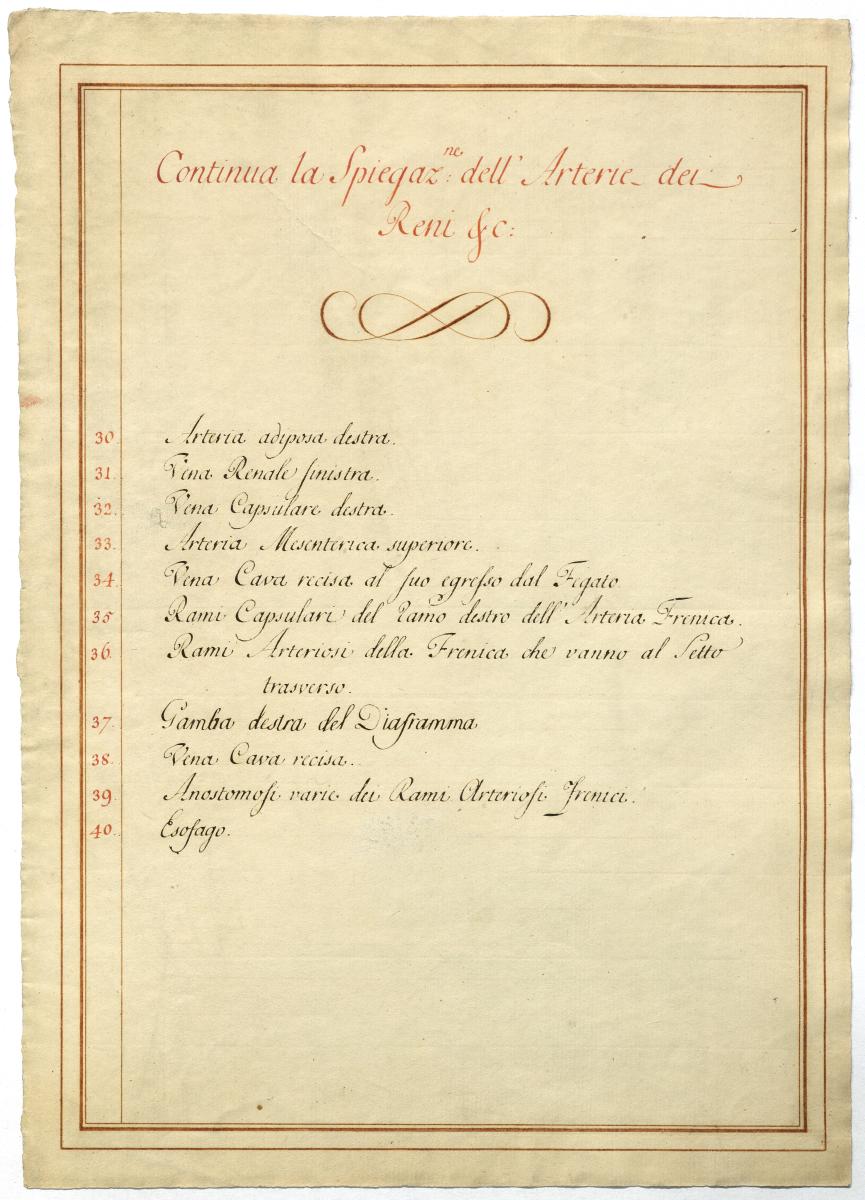 Continua la Spiegaz:ne dell' Arterie dei
Reni &c:
30. Arteria adiposa destra.
31. Vena Renale sinistra.
32. Vena Capsulare destra.
33. Arteria Mesenterica superiore.
34. Vena Cava recisa al suo egresso dal Fegato
35 Rami Capsulari del ramo destro dell' Arteria Frenica.
36. Rami Arteriosi della Frenica che vanno al Setto
trasverso.
37. Gamba destra del Diaframma
38. Vena Cava recisa.
39. Anostomosi varie dei Rami Arteriosi Frenici.
40. Esofago.